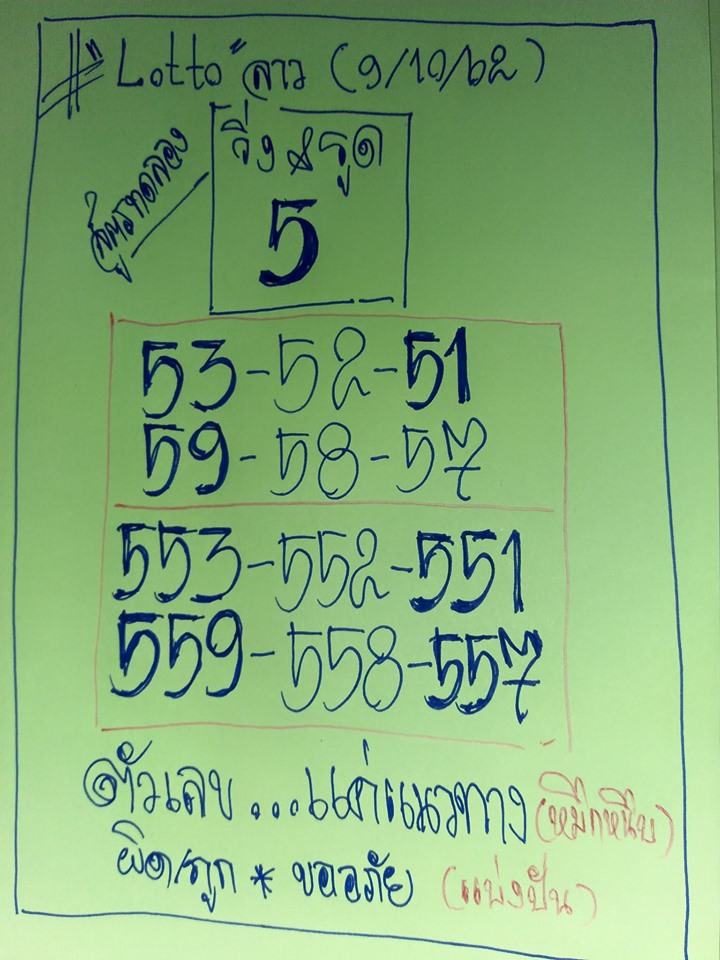 #"Lotto"ลาว (9/10/62)
สูตรทดลอง
วิ่ง & รูด
5
53-52-51
59-58-57
553-552-551
559-558-557
ตัวเลข...แค่แนวทาง (หมึกหนึบ)
ผิด/ถูก * ขออภัย (แบ่งปัน)